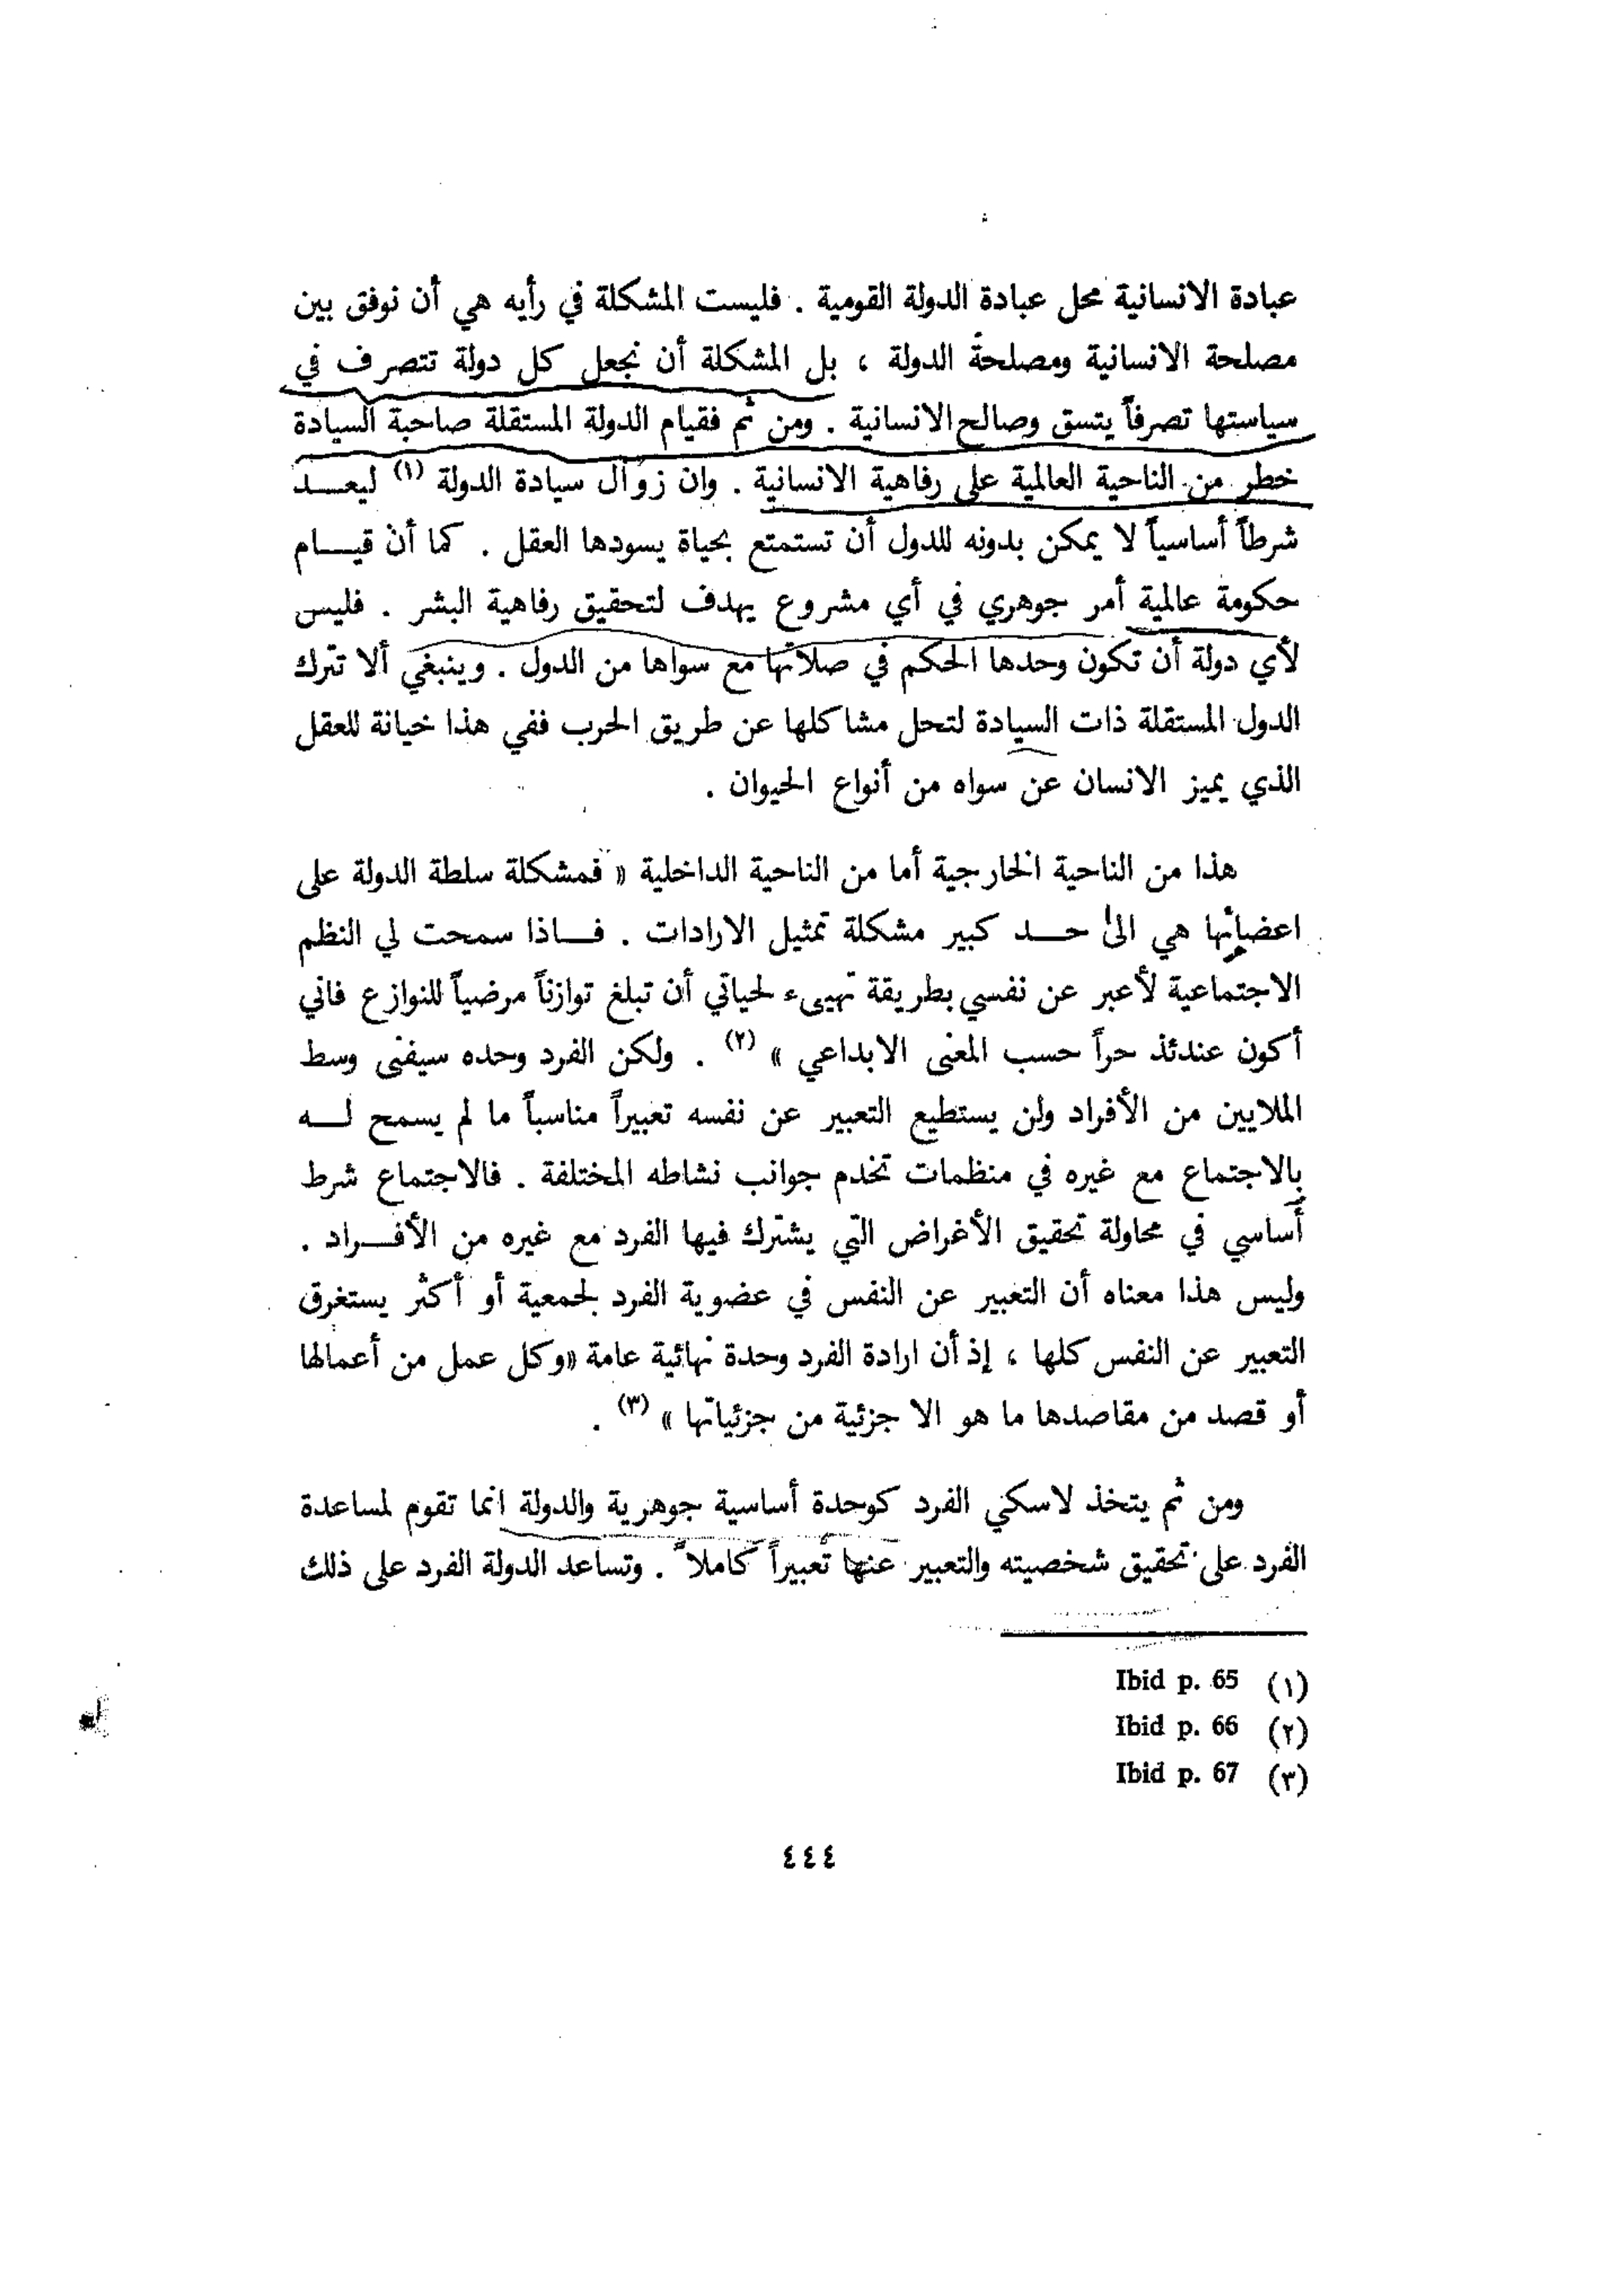 عبادة الانسانية محل عبادة الدولة القومية . فليست المشكلة في رأيه هي أن نوفق بين
مصلحة الانسانية ومصلحة الدولة ، بل المشكلة أن نجعل كل دولة تتصرف في
سياستها تصرفاً يتسق وصالح الانسانية . ومن ثم فقيام الدولة المستقلة صاحبة السيادة
خطر من الناحية العالمية على رفاهية الانسانية . وان زوال سيادة الدولة (١) ليعـــد
شرطاً أساسياً لا يمكن بدونه للدول أن تستمتع بحياة يسودها العقل . كما أن قيـــام
حكومة عالمية أمر جوهري في أي مشروع يهدف لتحقيق رفاهية البشر . فليس
لأي دولة أن تكون وحدها الحكم في صلاتها مع سواها من الدول . وينبغي ألا تترك
الدول المستقلة ذات السيادة لتحل مشاكلها عن طريق الحرب ففي هذا خيانة للعقل
الذي يميز الانسان عن سواه من أنواع الحيوان .
هذا من الناحية الخارجية أما من الناحية الداخلية « فمشكلة سلطة الدولة على
اعضائها هي الى حـــد كبير مشكلة تمثيل الارادات . فـــاذا سمحت لي النظم
الاجتماعية لأعبر عن نفسي بطريقة تهيىء لحياتي أن تبلغ توازناً مرضياً للنوازع فاني
أكون عندئذ حراً حسب المعنى الابداعي » (٢) . ولكن الفرد وحده سيفنى وسط
الملايين من الأفراد ولن يستطيع التعبير عن نفسه تعبيراً مناسباً ما لم يسمح لـــه
بالاجتماع مع غيره في منظمات تخدم جوانب نشاطه المختلفة . فالاجتماع شرط
أساسي في محاولة تحقيق الأغراض التي يشترك فيها الفرد مع غيره من الأفـــراد .
وليس هذا معناه أن التعبير عن النفس في عضوية الفرد لجمعية أو أكثر يستغرق
التعبير عن النفس كلها ، إذ أن ارادة الفرد وحدة نهائية عامة «وكل عمل من أعمالها
أو قصد من مقاصدها ما هو الا جزئية من جزئياتها » (٣) .
ومن ثم يتخذ لاسكي الفرد كوحدة أساسية جوهرية والدولة انما تقوم لمساعدة
الفرد على تحقيق شخصيته والتعبير عنها تعبيراً كاملاً . وتساعد الدولة الفرد على ذلك
(١) Ibid p. 65
(٢) Ibid p. 66
(٣) Ibid p. 67
٤٤٤